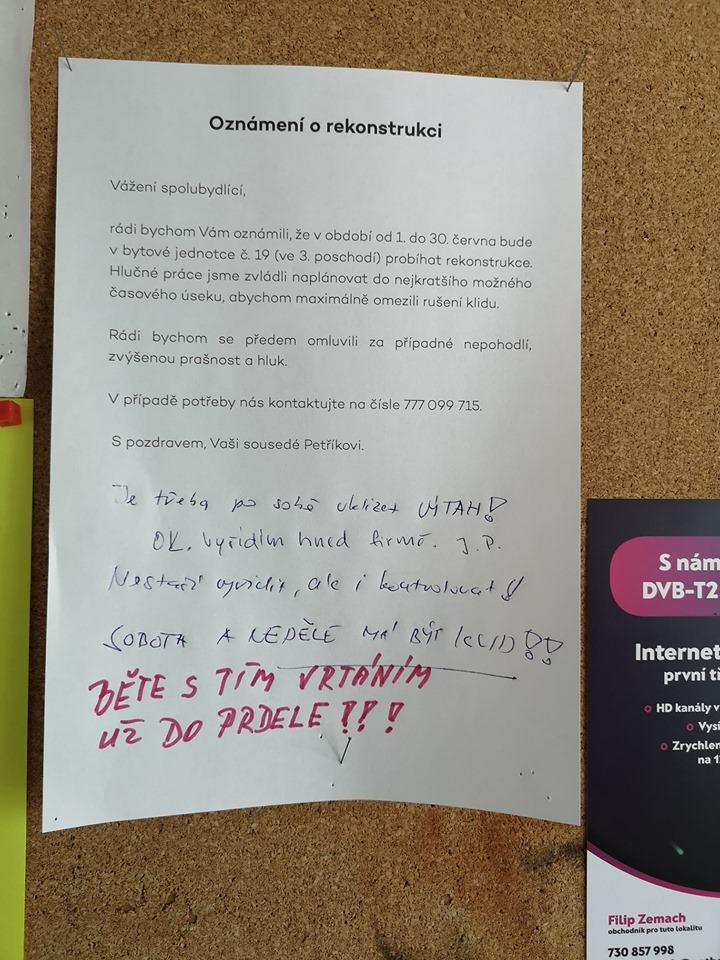 Oznámení o rekonstrukci
Vážení spolubydlící,
rádi bychom Vám oznámili, že v období od 1. do 30. června bude
v bytové jednotce č. 19 (ve 3. poschodí) probíhat rekonstrukce.
Hlučné práce jsme zvládli naplánovat do nejkratšího možného
časového úseku, abychom maximálně omezili rušení klidu.
Rádi bychom se předem omluvili za případné nepohodlí,
zvýšenou prašnost a hluk.
V případě potřeby nás kontaktujte na čísle 777 099 715.
S pozdravem, Vaši sousedé Petříkovi.
Je třeba po sobě uklízet VÝTAH!
OK, vyřídím hned firmě. J.P.
Nestačí vyřídit, ale i kontrolovat!
SOBOTA A NEDĚLE MÁ BÝT KLID!!
BĚTE S TÍM VRTÁNÍM
UŽ DO PRDELE!!!
S nám
DVB-T2
Internet
první tř
HD kanály v
Vysí
Zrychlen
na 1
Filip Zemach
obchodník pro tuto lokalitu
730 857 998